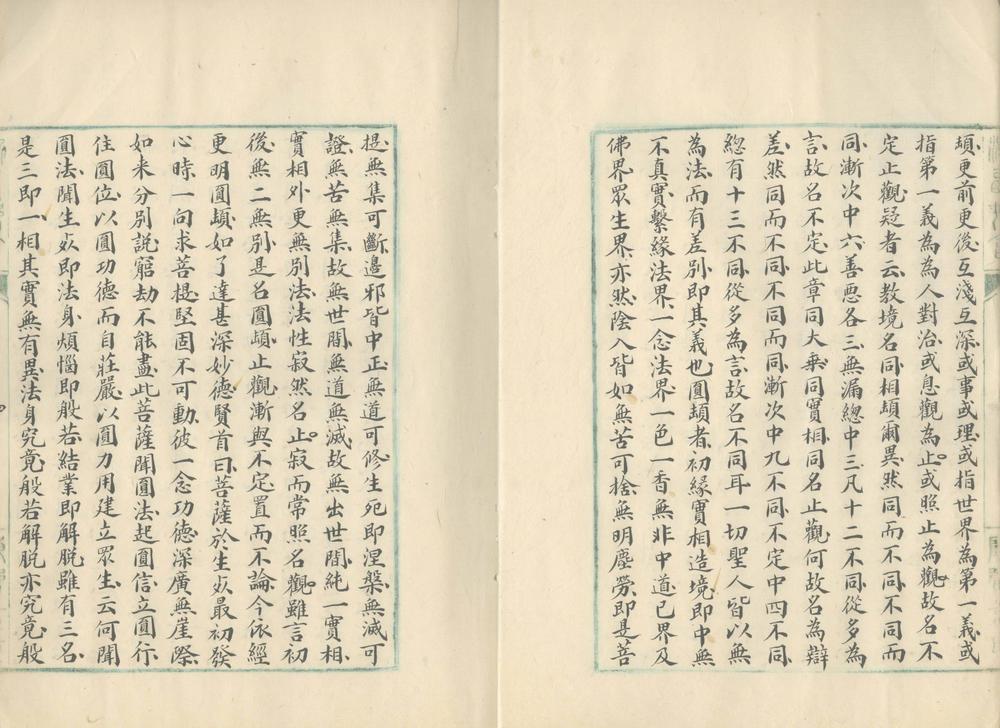 頓更前更後互淺互深或事或理或指世界為第一義或
指第一義為為人對治或息觀為止或照止為觀故名不
定止觀疑者云教境名同相頓爾異然同而不同不同而
同漸次中六善惡各三無漏總中三凡十二不同從多為
言故名不定此章同大乘同實相同名止觀何故名為辯
差然同而不同不同而同漸次中九不同不定中四不同
總有十三不同從多為言故名不同耳一切聖人皆以無
為法而有差別即其義也圓頓者初緣實相造境即中無
不真實繫緣法界一念法界一色一香無非中道已界及
佛界眾生界亦然陰入皆如無苦可捨無明塵勞即是菩
提無集可斷邊邪皆中正無道可修生死即涅槃無滅可
證無苦無集故無世間無道無滅故無出世間純一實相
實相外更無別法法性寂然名止寂而常照名觀雖言初
後無二無別是名圓頓止觀漸與不定置而不論今依經
更明圓頓如了達甚深妙德賢首曰菩薩於生死最初發
心時一句求菩提堅固不可動彼一念功德深廣無崖際
如来分別說窮劫不能盡此菩薩聞圓法起圓信立圓行
住圓位以圓功德而自莊嚴以圓力用建立眾生云何聞
圓法聞生死即法身煩惱即般若結業即解脫雖有三名
是三即一相其實無有異法身究竟般若解脫亦究竟般